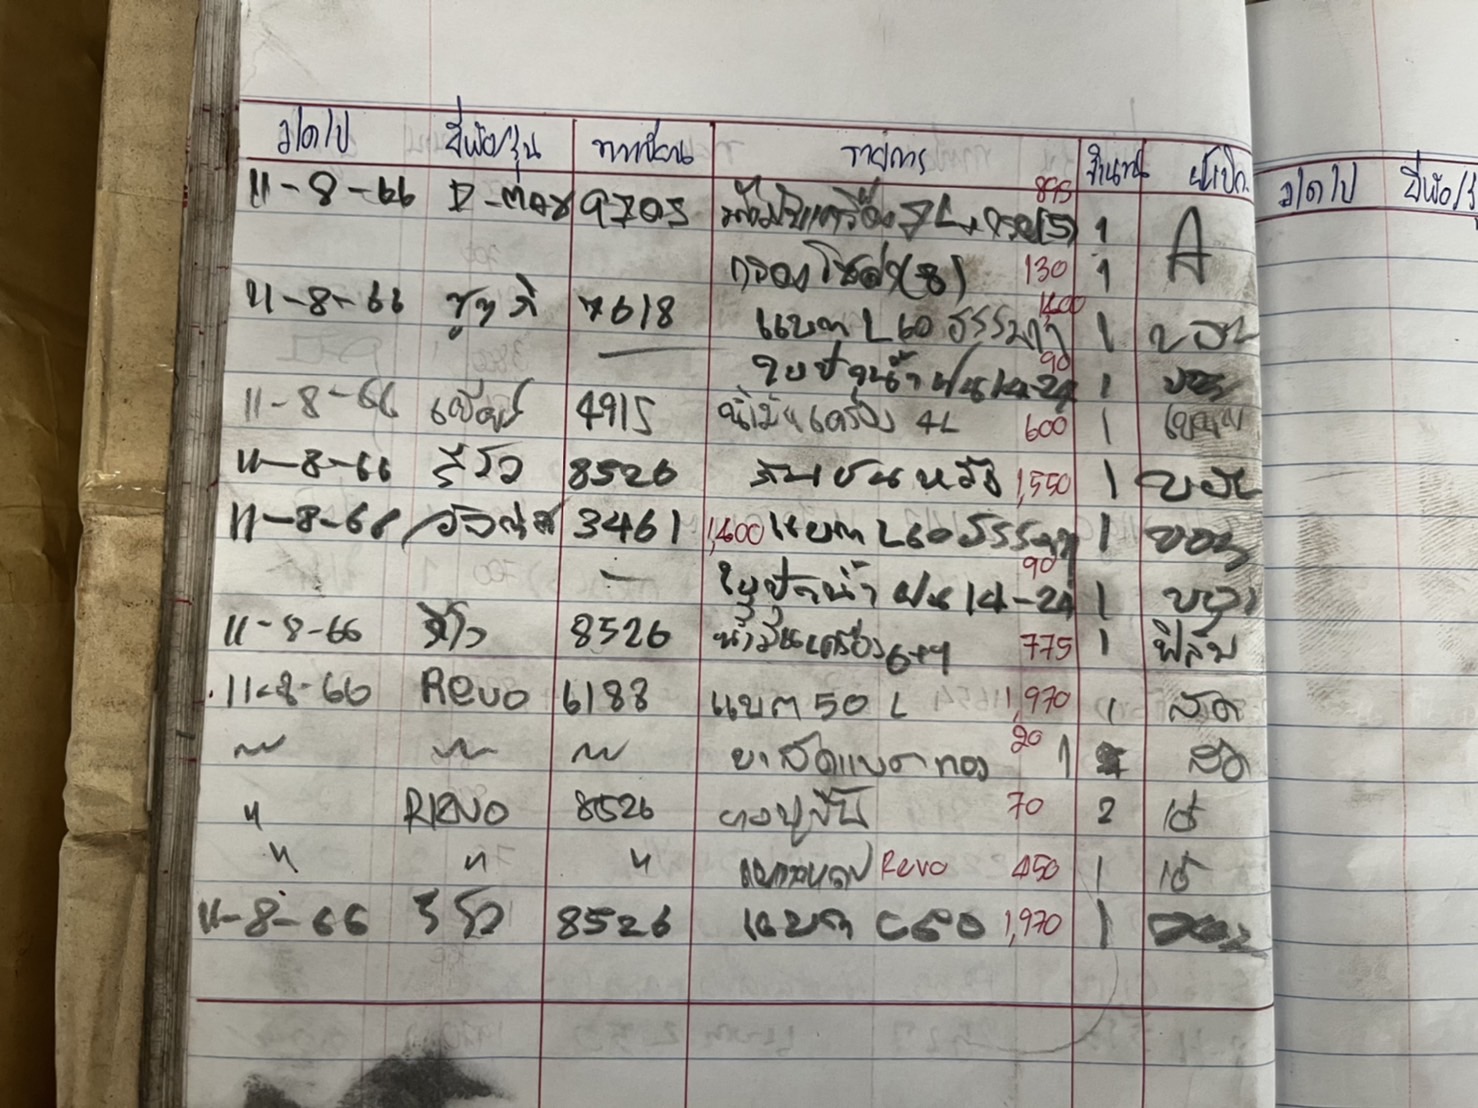 ว/ด/ป ยี่ห้อ/รุ่น ทะเบียน รายการ จำนวน ผู้เบิก
11-8-66 D-max 9705 น้ำมันเครื่อง 7L+กรอง(5) 895 1 A
กรองโซล่า(8) 130 1
11-8-66 ซูซูกิ 7618 แบต L60 ธรรมดา 1,400 1 บอย
ใบปัดน้ำฝน 14-24 90 1 บอย
11-8-66 4915 น้ำมันเครื่อง 4L 600 1
11-8-66 รีโว 8526 คันชัก 1,550 1 บอย
11-8-66 3461 1,400 แบต L60 ธรรมดา 1 บอย
ใบปัดน้ำฝน 14-24 90 1 บอย
11-8-66 รีโว 8526 น้ำมันเครื่อง 6+1 775 1 ฟิล์ม
11-8-66 Revo 6188 แบต 50 L 1,970 1 สด
~ ~ ~ แบต 20 1 สด
" REVO 8526 70 2 เต้
" " " Revo 450 1 เต้
11-8-66 รีโว 8526 แบต 1,970 1
ว/ด/ป ยี่ห้อ/รุ่